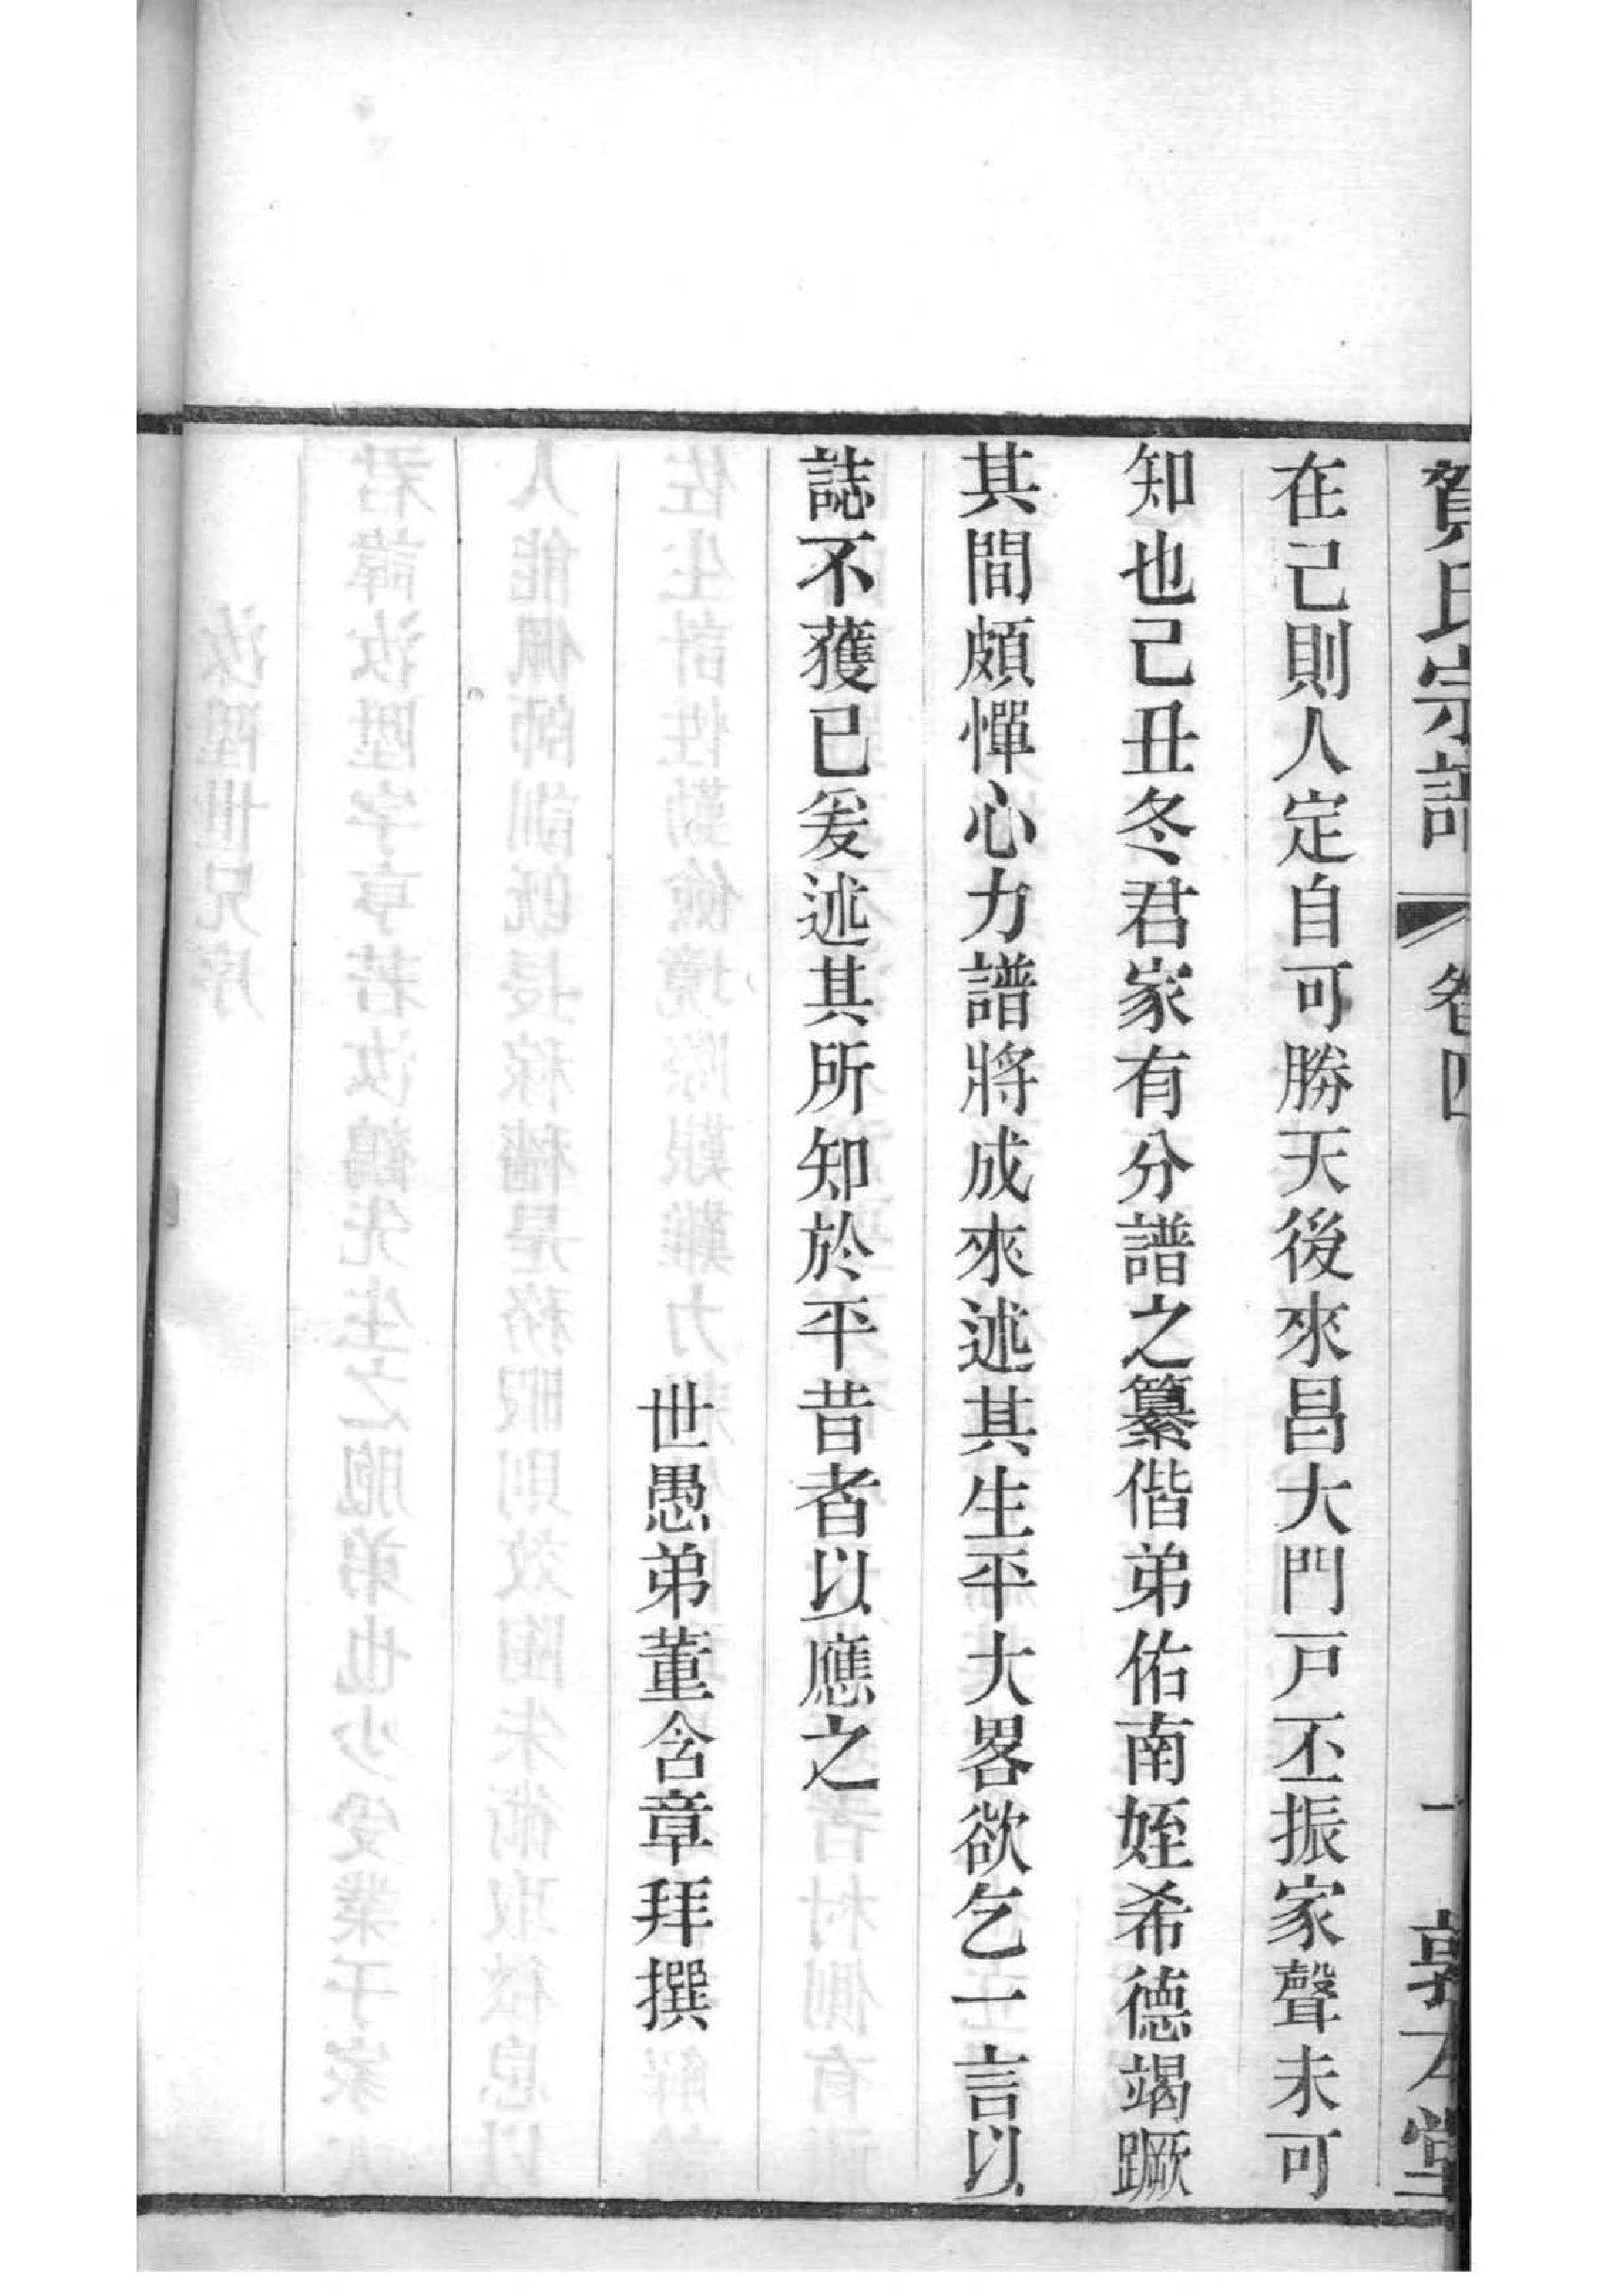 賀氏宗譜 卷四 十 敦本堂
在己則人定自可勝天後來昌大門戸丕振家聲未可
知也己丑冬君家有分譜之纂偕弟佑南姪希德竭蹶
其間頗憚心力譜將成來述其生平大畧欲乞一言以
誌不獲已爰述其所知於平昔者以應之
世愚弟董含章拜撰